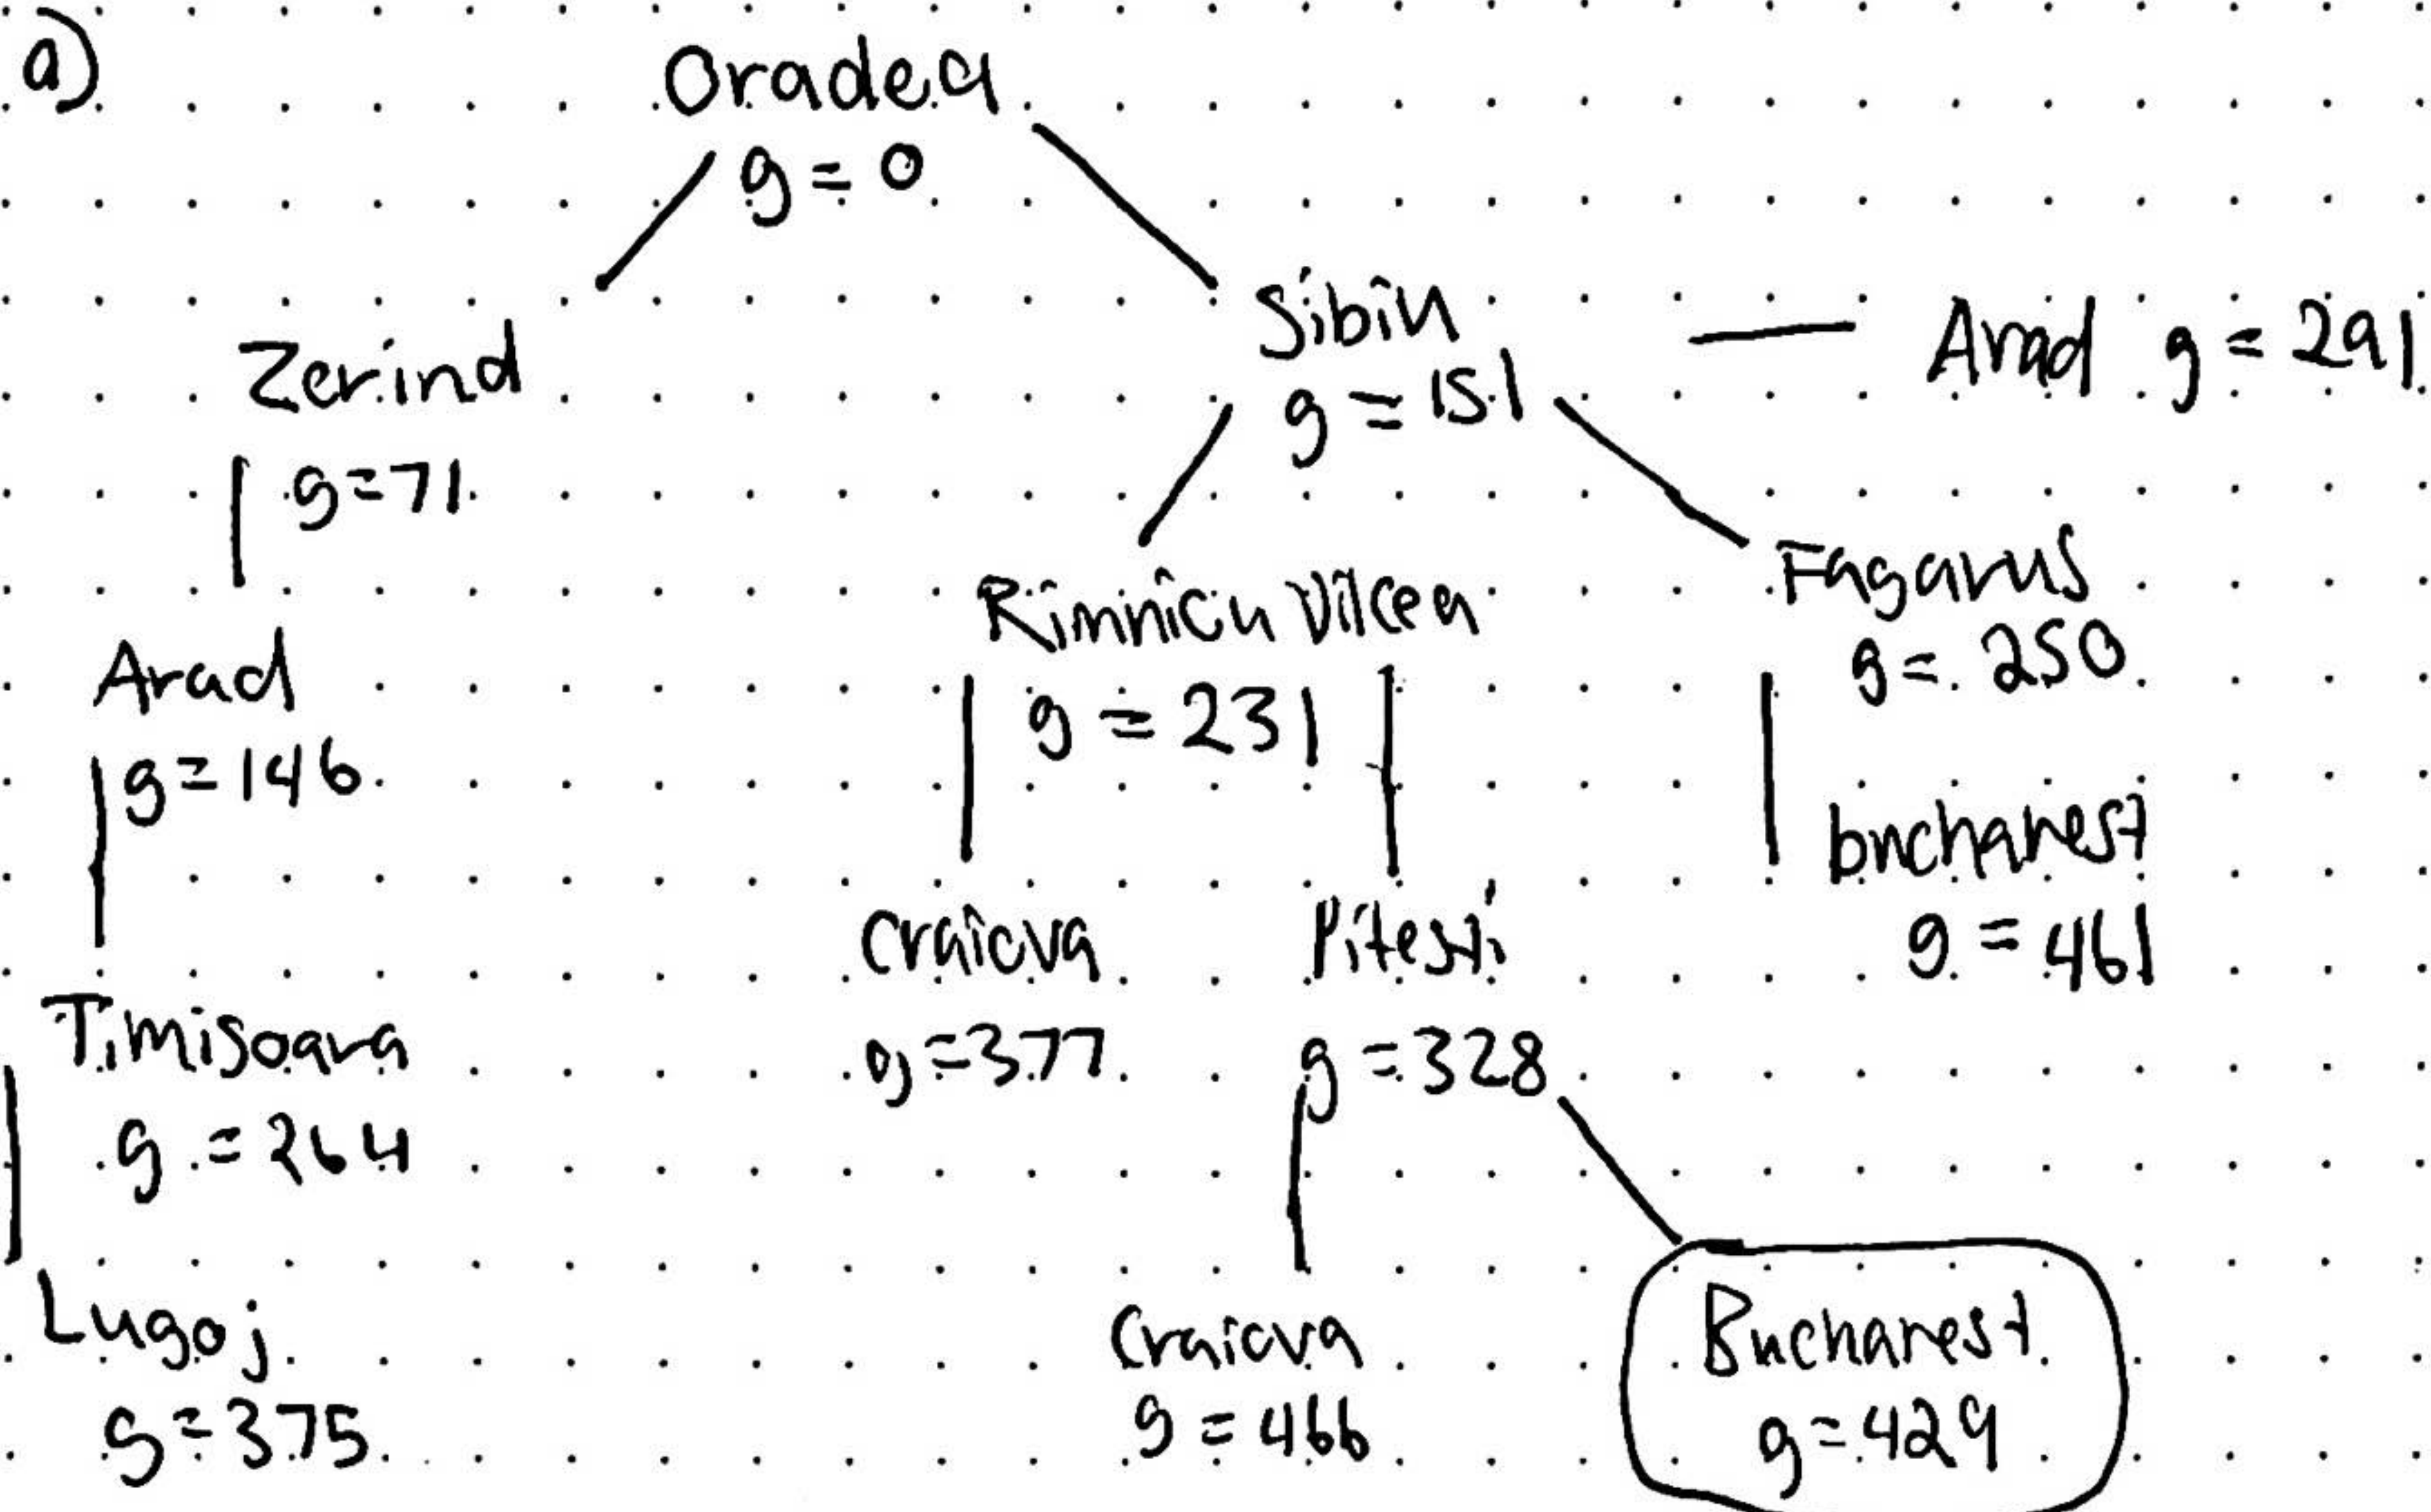 a)
Oradea
g = 0
Zerind
g=71
Sibiu
g = 151
Arad g = 291
Arad
g=146
Rimnicu Vilcea
g = 231
Fagarus
g = 250
Timisoara
g = 264
Craiova
g=377
Pitesti
g = 328
bucharest
g = 461
Lugoj
g=375
Craiova
g = 466
Bucharest
g=429